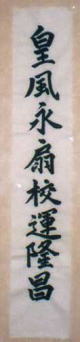 皇風永扇校運隆昌